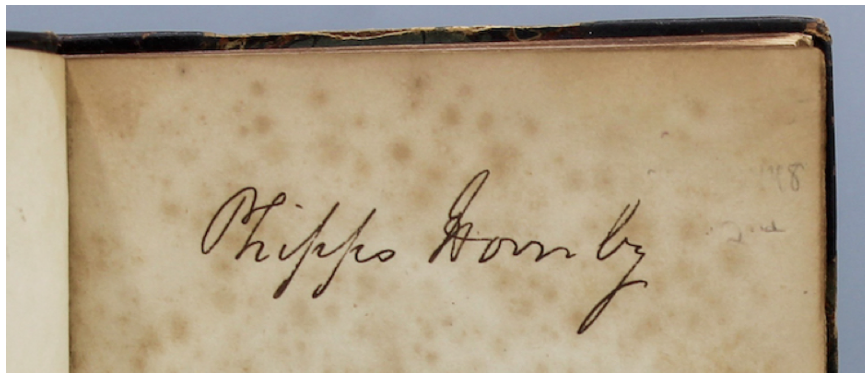 Phipps Hornby
48